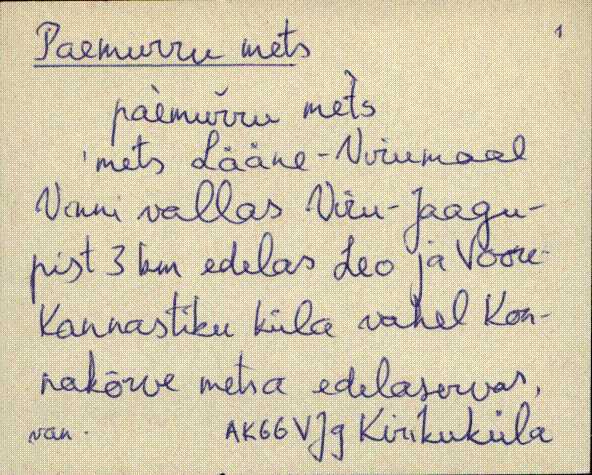 Paemurru mets 1
pàemŭrru mèts
'mets Lääne-Virumaal
Vinni vallas Viru-Jaagu-
pist 3 km edelas Leo ja Voore-
Kannastiku küla vahel Kon-
nakõrve metsa edelaservas,
van. AK66 VJg Kirikuküla